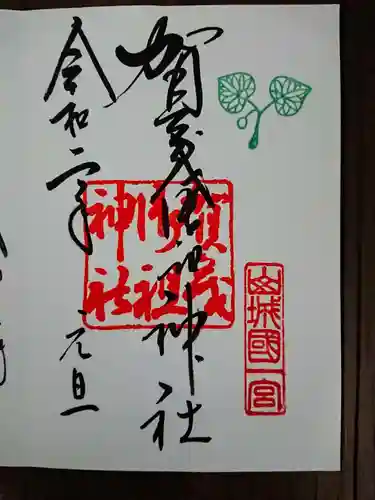 山城國一宮
賀茂御祖神社
賀茂御祖神社
令和二年 元旦